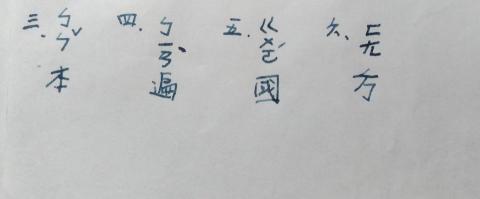 三、ㄅㄣˇ 四、ㄅㄧㄢˋ 五、ㄍㄨㄛˊ 六、ㄈㄤ
本 遍 國 方